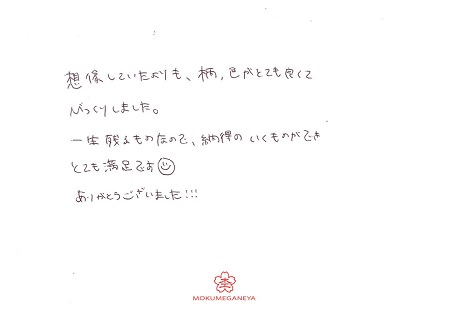 想像していたよりも、柄、色がとても良くて
びっくりしました。
一生残るものなので、納得のいくものができ
とても満足です
ありがとうございました!!!
MOKUMEGANEYA